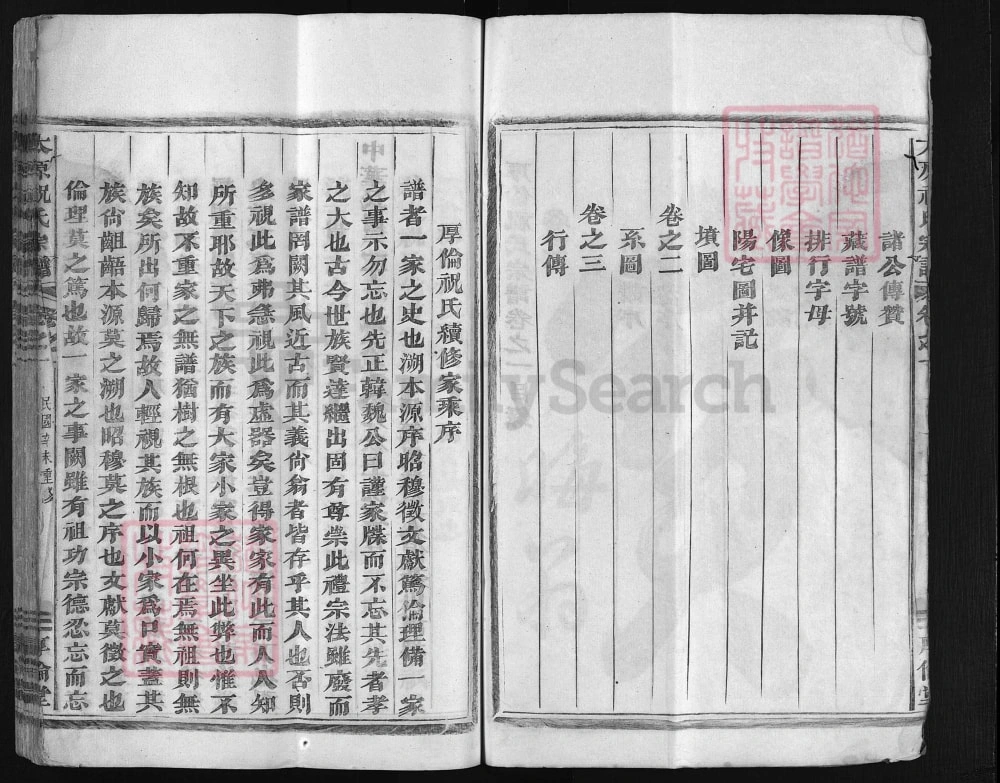 諸公傳贊
藏譜字號
排行字母
像圖
陽宅圖并記
墳圖
卷之二
系圖
卷之三
行傳
厚倫祝氏續修家乘序
譜者一家之史也溯本源序昭穆徵文獻篤倫理備一家
之事示勿忘也先正韓魏公曰謹家牒而不忘其先者孝
之大也古今世族賢達繼出固有尊崇此禮宗法雖廢而
家譜罔闕其風近古而其義尙翁者皆存乎其人也否則
多視此爲弗急視此爲虛器矣豈得家家有此而人人知
所重耶故天下之族而有大家小家之異坐此弊也惟不
知故不重家之無譜猶樹之無根也祖何在焉無祖則無
族矣所出何歸焉故人輕視其族而以小家爲口實蓋其
族尙齟齬本源莫之溯也昭穆莫之序也文獻莫徵之也
倫理莫之篤也故一家之事闕雖有祖功宗德忍忘而忘
太原祝氏宗譜
民國辛未重修
厚倫堂
FamilySearch